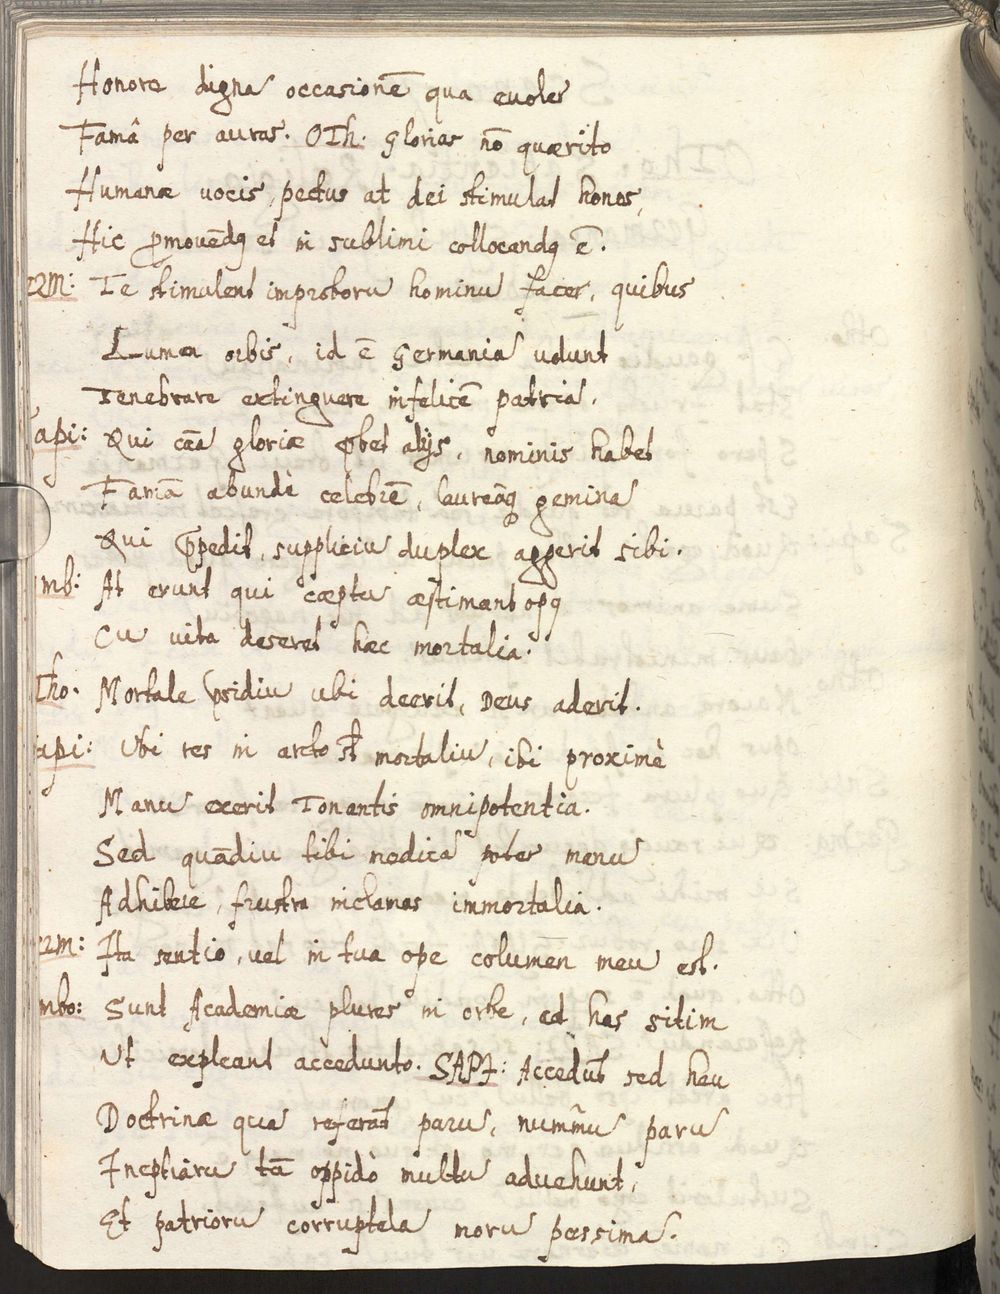 Honore digna occasionē qua euoles
Famâ per auras. OTh. Glorias nō quærito
Humanæ uocis, pectus at dei stimulat honos,
Hic p̱mouēdꝫ et in sublimi collocandꝫ ē.
erm: Te stimulent improborū hominū faces, quibus
Lumen orbis, id ē Germaniā uolunt
Tenebrare extinguere infelicē patriā.
Sapi: Qui cāā gloriæ p̱bet alijs, nominis habet
Famā abundè celebrē, laureāqꝫ geminā
Qui p̱pedit, suppliciū duplex aggerit sibi.
mb: At erunt qui cæptū æstiment opꝫ
Cū uita deseret hæc mortalia.
Tho. Mortale p̄sidiū ubi deerit, Deus aderit.
api: Ubi res in arcto st̄ mortaliū, ibi proximè
Manū exerit Tonantis omnipotentia.
Sed quādiu tibi medicā potes manū
Adhibere, frustra inclamas immortaliā.
erm: Ita sentio, uel in tua ope columen meū est.
mbo: Sunt Academiæ plures in orbe, ad has sitim
Ut expleant accedunto. SAPI: Accedūt sed heu
Doctrinæ quā referāt parū, nummū parū
Ineptiarū tā oppidò multū aduehunt,
Et patriorū corruptela morū pessima.